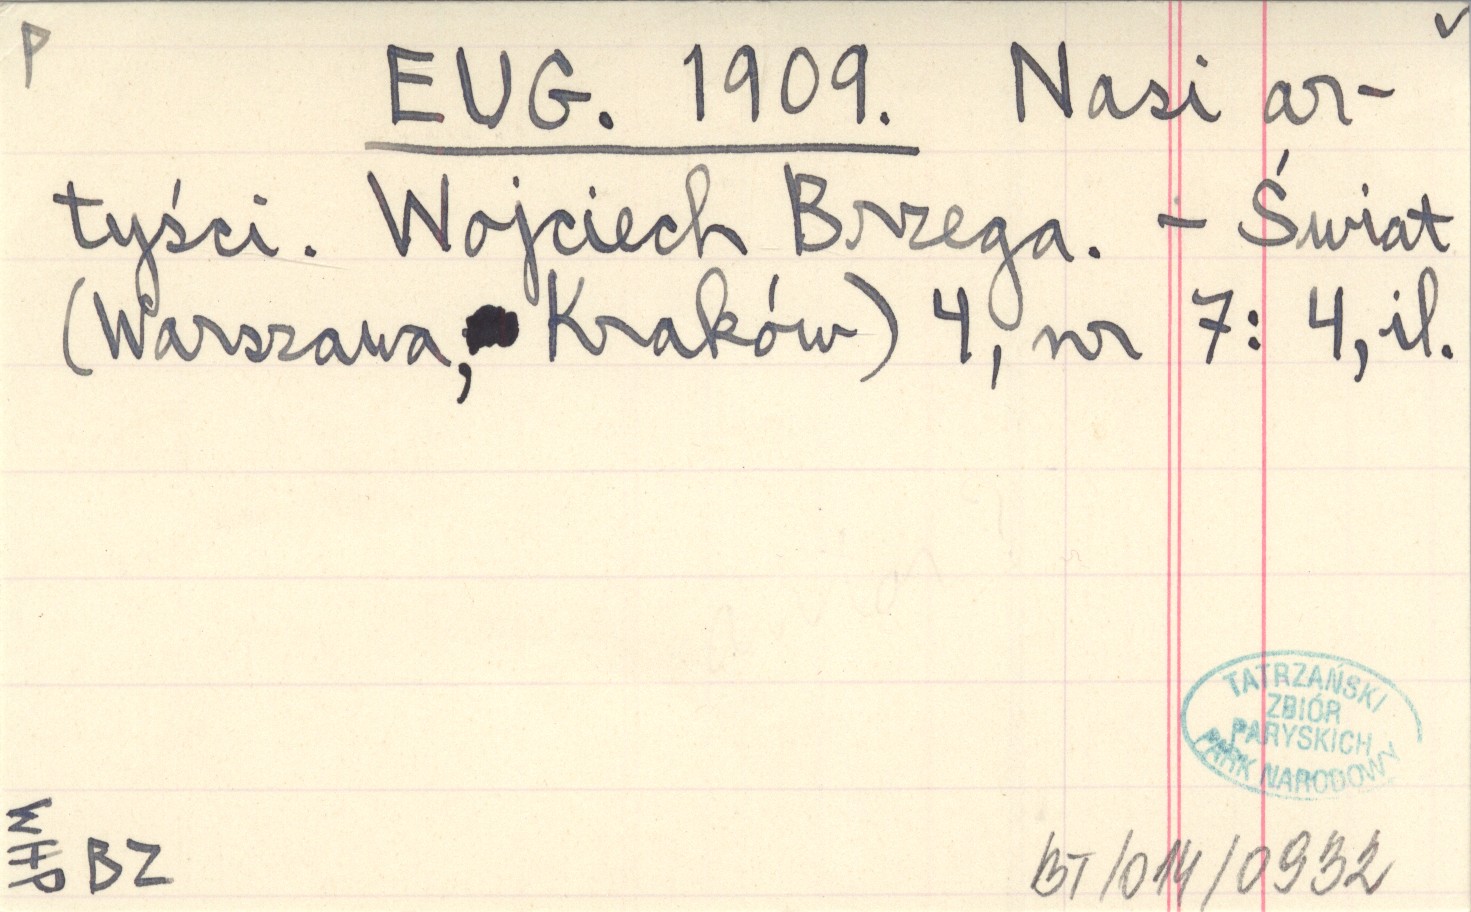 P
✓
EUG. 1909. Nasi ar-
tyści. Wojciech Brzega. - Świat
(Warszawa, Kraków) 4, nr 7: 4, il.
TATRZAŃSKI
ZBIÓR
PARYSKICH
PARK NARODOWY
BZ
BT/014/0932